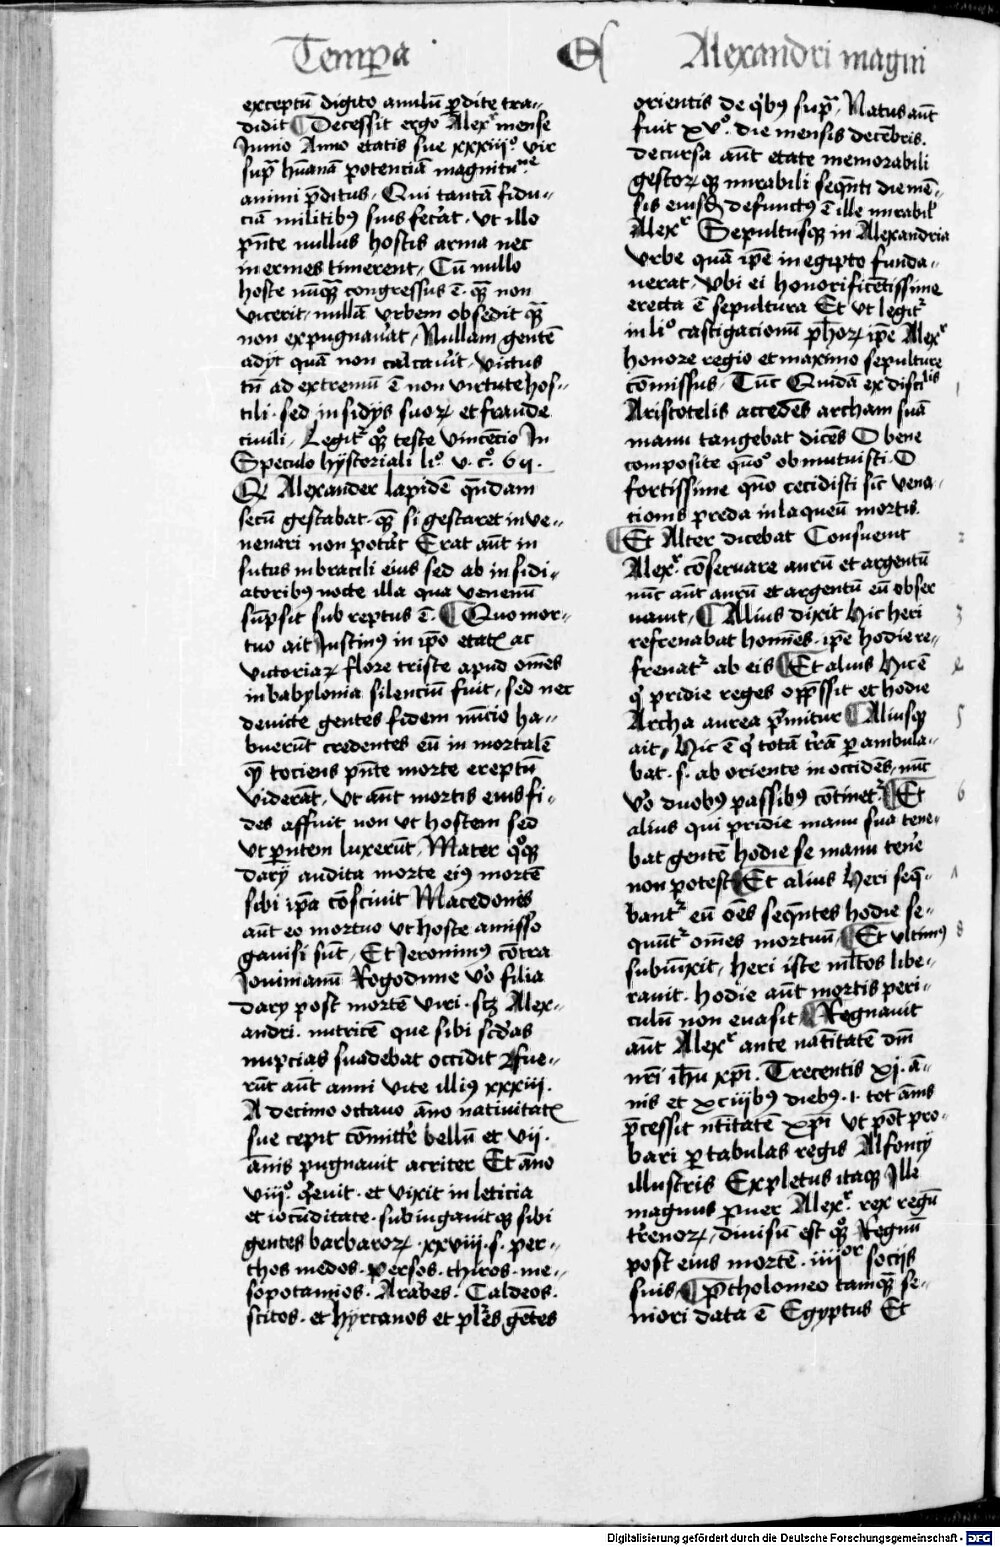 Temp̱a Et Alexandri magni
exceptū digito anulū p̱dite tra-
didit ¶ Decessit ergo Alexʳ mense
Junio Anno etatis sue xxxiijº vir
supᵃ hūanā potenciā magnitu.ⁿᵉ
animi p̄ditus. Qui tantā fidu-
ciā militibꝰ suis fecāt. vt illo
pn̄te nullus hostis arma nec
inermes timerent, Cū nullo
hoste nūqᵃ congressus ē. qᵃ non
vicerit, nullā vrbem obsedit qᵃ
non expugnauāt, Nullam gentē
adijt quā non calcauīt, victus
tn̄ ad extremū ē non virtute hos-
tili. sed insidijs suoꝝ et fraude
ciuili, Legitʳ qͦ teste vincēcio In
Speculo hystoriali li.º v. c.º 6ij.
Qᵈ Alexander lapidē qn̄dam
secū gestabat. qᵃ si gestaret in ve-
nenari non potāt Erat aūt in
sutus in bracili eius sed ab insidi-
atoribus nocte illa qua venenū
sūpsit sub reptus ē. ¶ Quo mor-
tuo ait Justinꝰ in ip̄o etatꝭ ac
victoriaꝝ flore triste apud om̄es
in babylonia silenciū fuit, sed nec
deuicte gentes fidem nūcio ha-
buerūt credentes eū in mortalē
qᵉ tociens pn̄te morte ereptū
viderāt, vt aūt mortis eius fi-
des affuit non vt hostem sed
vt p̱ntem luxerūt, Mater qͦꝫ
Darij audita morte eiꝰ mortē
sibi ip̄a cōsciuit Macedonis
aūt eo mortuo vt hoste amisso
gauisi sūt, Et Jeronimꝰ cōtra
Jouinianū Rogodune v̊o filia
dary post mortē viri. scꝫ Alex-
andri. nutricē que sibi scd̄as
nupcias suadebat occidit Fue-
rūt aūt anni vite illiꝰ xxxiij.
A decimo octauo āno natiuitatꝭ
sue cepit cōmittē bellū et vij.
ānis pugnauit acriter Et āno
viijº. qͥeuit. et vixit in leticia
et iocūditate. subiugauitqꝫ sibi
gentes barbaroꝝ. xxviij. s. per-
thos medos. persos. thiros. me-
sopotamios. Arabes. Caldeos.
scitos. et hyrcanos et pl̄es gētes
orientis de qͥbꝰ supᵃ, Natus aūt
fuit xvº. die mensis decēbris.
decursa aūt etate memorabili
gestoꝝ qꝫ mirabili seqn̄ti die mē-
sis eiusd̄ defunctꝰ ē ille mirabil̕
Alexʳ Sepultusqꝫ in Alexandria
vrbe quā ip̄e in egipto funda-
uerat, vbi ei honorificētissime
erecta ē sepultura Et vt legitʳ
in liº castigacionū ph̄oꝝ ip̄e Alexʳ
honore regio et maximo sepulture
cōmissus, Tūc Quidā ex discilis
Aristotelis accedēs archam suā
manu tangebat dicēs O bene
composite quºo obmutuisti. O
fortissime qūo cecidisti sic̄ vena-
tionis preda in laqueū mortis.
¶ Et Alter dicebat Consueuit
Alexʳ. cōseruare aurū et argentū
nūc aūt aurū et argentū eū obser
uant, ¶ Alius dixit Hic heri
refrenabat homīes. ip̄e hodie re-
frenatʳ ab eis ¶ Et alius Hic ē
qͥ pridie reges opp̄ssit et hodie
Archa aurea p̄mitur ¶ Aliusqꝫ
ait, Hic ē qͥ totā tr̄ā p̱ambula-
bat. s. ab oriente in occidēs, nūc
v̊o duobꝰ passibꝰ cōtinetʳ. ¶ Et
alius qui pridie manu sua tene-
bat gentē hodie se manu tenēe
non potest ¶ Et alius Heri seq̄-
bantʳ eū oēs seqn̄tes hodie se-
qūtʳ om̄es mortuū ¶ Et vltimꝰ
subiūxit, heri iste ml̄tos libe-
rauit. hodie aūt mortis peri-
culū non euasit ¶ Regnauit
aūt Alexʳ ante natītatē dn̄i
nr̄i ih̄u xp̄i. Trecentis xj. ā-
nis et xciijbꝰ diebꝰ. i. tot ānis
p̄cessit nt̄itatē xp̄i vt pōt pro-
bari p̱ tabulas regis Alfoncij
illustris Expletus itaqꝫ Ille
magnus puer Alexʳ. rex regū
tr̄enoꝝ, diuisū est qͦꝫ Regnū
post eius mortē. iiijᵒʳ socijs
suis, ¶ Ptholomeo tamqᵃ se-
niori data ē Egyptus Et
1
2
3
4
5
6
7
8
Digitalisierung gefördert durch die Deutsche Forschungsgemeinschaft - DFG